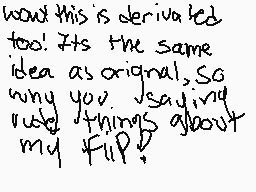 wow! this is derivated
too! Its the same
idea as orignal, so
why you saying
rude things about
my FliP?